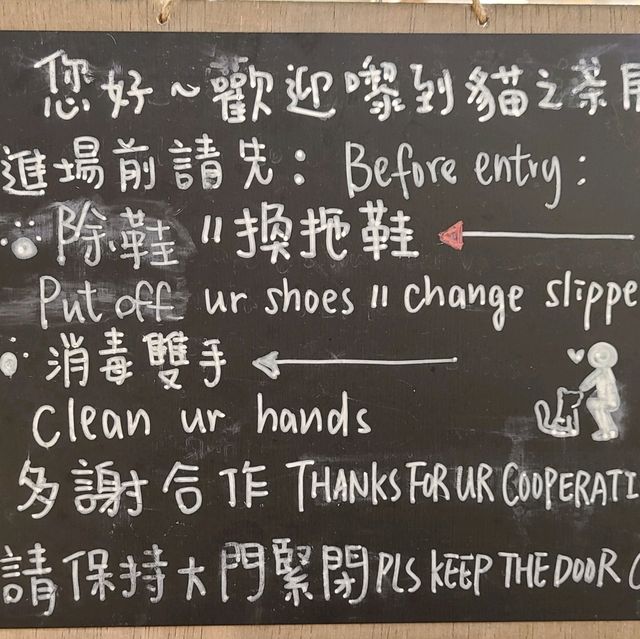 您好~歡迎嚟到貓之茶
進場前請先: Before entry:
除鞋 " 換拖鞋
Put off ur shoes " change slippe
消毒雙手
clean ur hands
多謝合作 THANKS FOR UR COOPERATI
請保持大門緊閉 PLS KEEP THE DOOR C